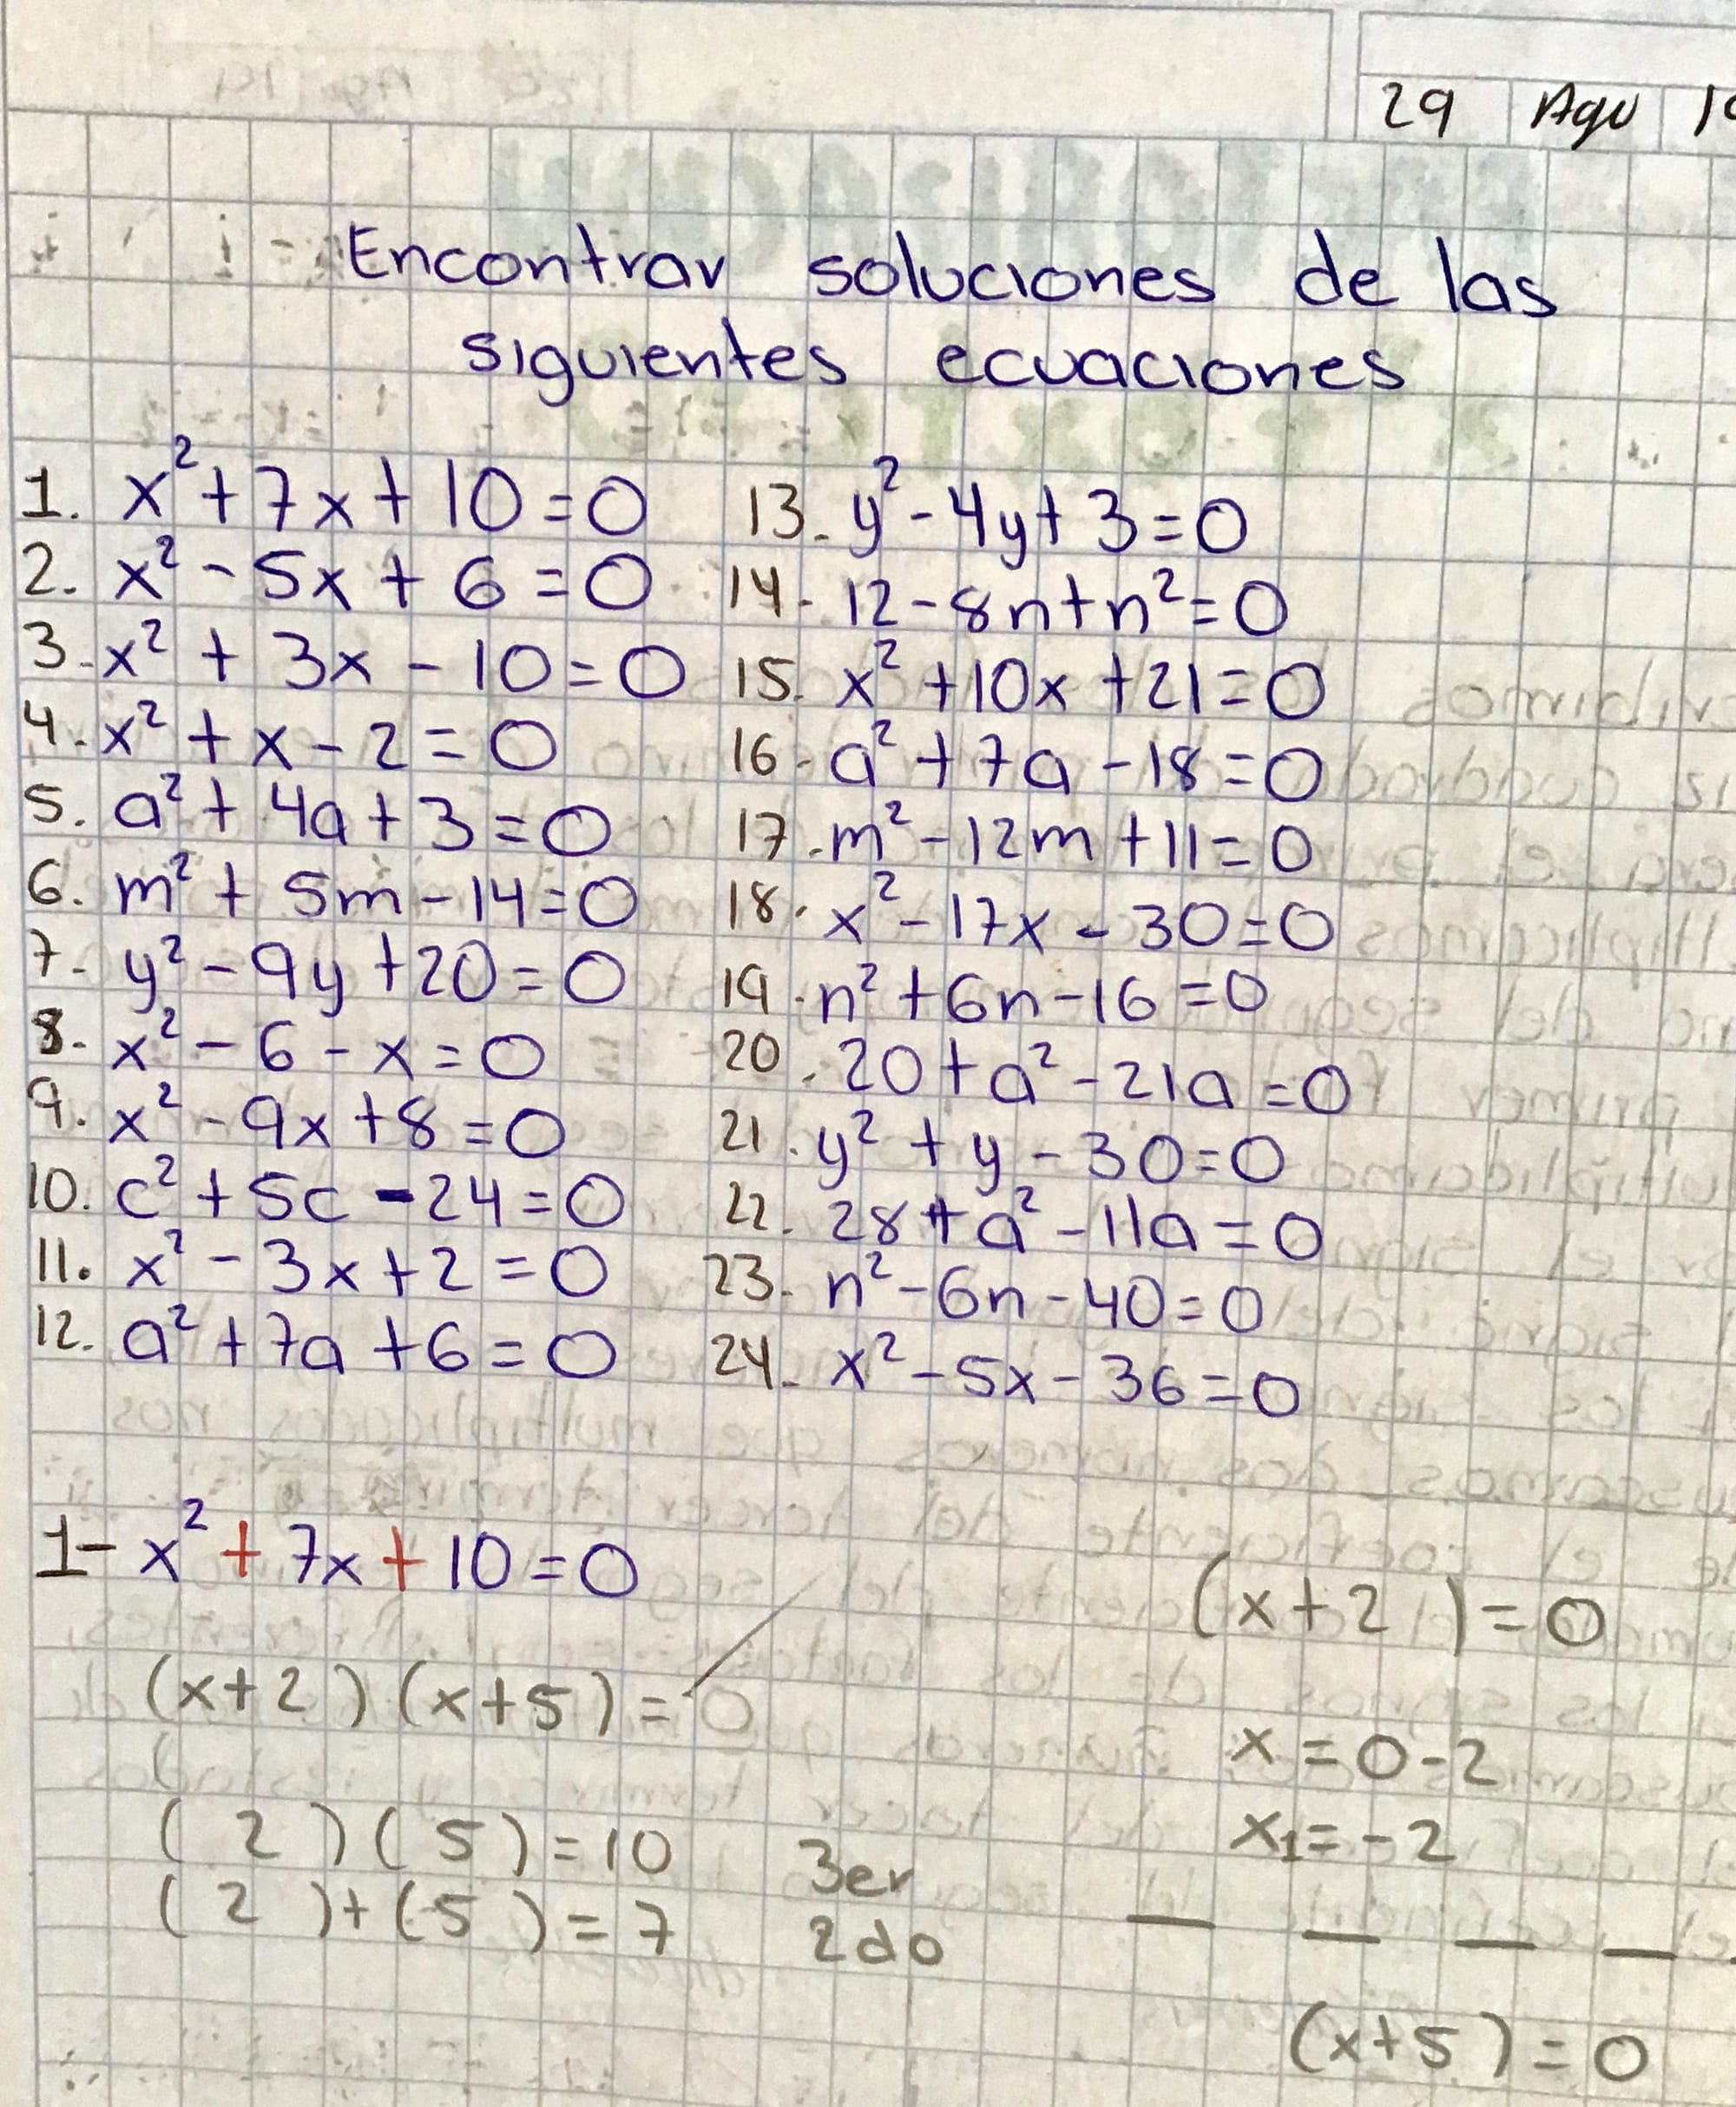 29 Ago
Encontrar soluciones de las
siguientes ecuaciones
1. x² + 7x + 10 = 0
2. x² - 5x + 6 = 0
3.- x² + 3x - 10 = 0
4.- x² + x - 2 = 0
5. a² + 4a + 3 = 0
6. m² + 5m - 14 = 0
7- y² - 9y + 20 = 0
8- x² - 6 - x = 0
9. x² - 9x + 8 = 0
10. c² + 5c - 24 = 0
11. x² - 3x + 2 = 0
12. a² + 7a + 6 = 0
13.- y² - 4y + 3 = 0
14- 12 - 8n + n² = 0
15. x² + 10x + 21 = 0
16.- a² + 7a - 18 = 0
17.- m² - 12m + 11 = 0
18. x² - 17x - 30 = 0
19.- n² + 6n - 16 = 0
20. 20 + a² - 21a = 0
21. y² + y - 30 = 0
22. 28 + a² - 11a = 0
23- n² - 6n - 40 = 0
24- x² - 5x - 36 = 0
1- x² + 7x + 10 = 0
(x+2) (x+5) = 0
( 2 ) ( 5 ) = 10 3er
( 2 ) + ( 5 ) = 7 2do
(x+2 ) = 0
x = 0 - 2
x₁ = - 2
(x+5 ) = 0